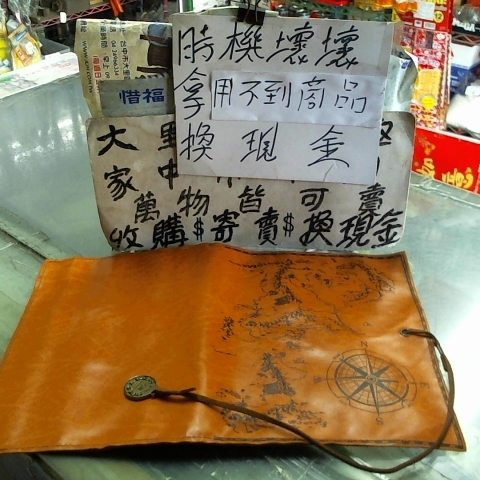 時機壞壞
拿用不到商品
換現金
惜福
大
家 中
萬物皆可賣
收購$寄賣$換現金